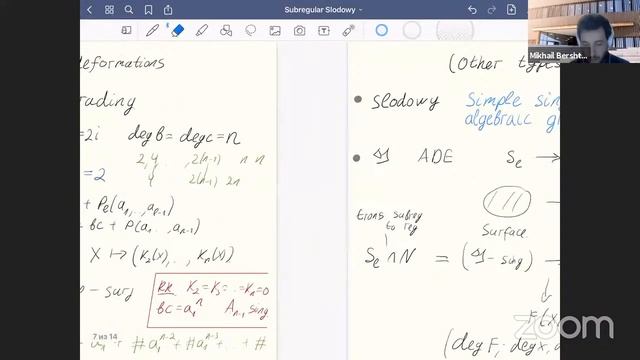 Subregular Slodowy
Mikhail Bersht...
deformations
rading
=2i deg b = deg c = n
2, 4, .. , 2(n-1) n n
4 2(n-1) 2n
= 2
+ Pe(a1, .., an-1)
= bc + P(a1 .., an-1)
X ↦ (K2(X), .. , Kn(X))
- surj
RK K2 = K3 = ... = Kn = 0
bc = a1^n An-1 sing
7 из 14
#a1^n-2 + #a1^n-3 + .. + #
(Other types
• Slodowy Simple sin
algebraic g
• ADE Se →
trans subreg
to reg
Surface
Se ∩ N = ( - sing)
(deg F; deg x,
zoom